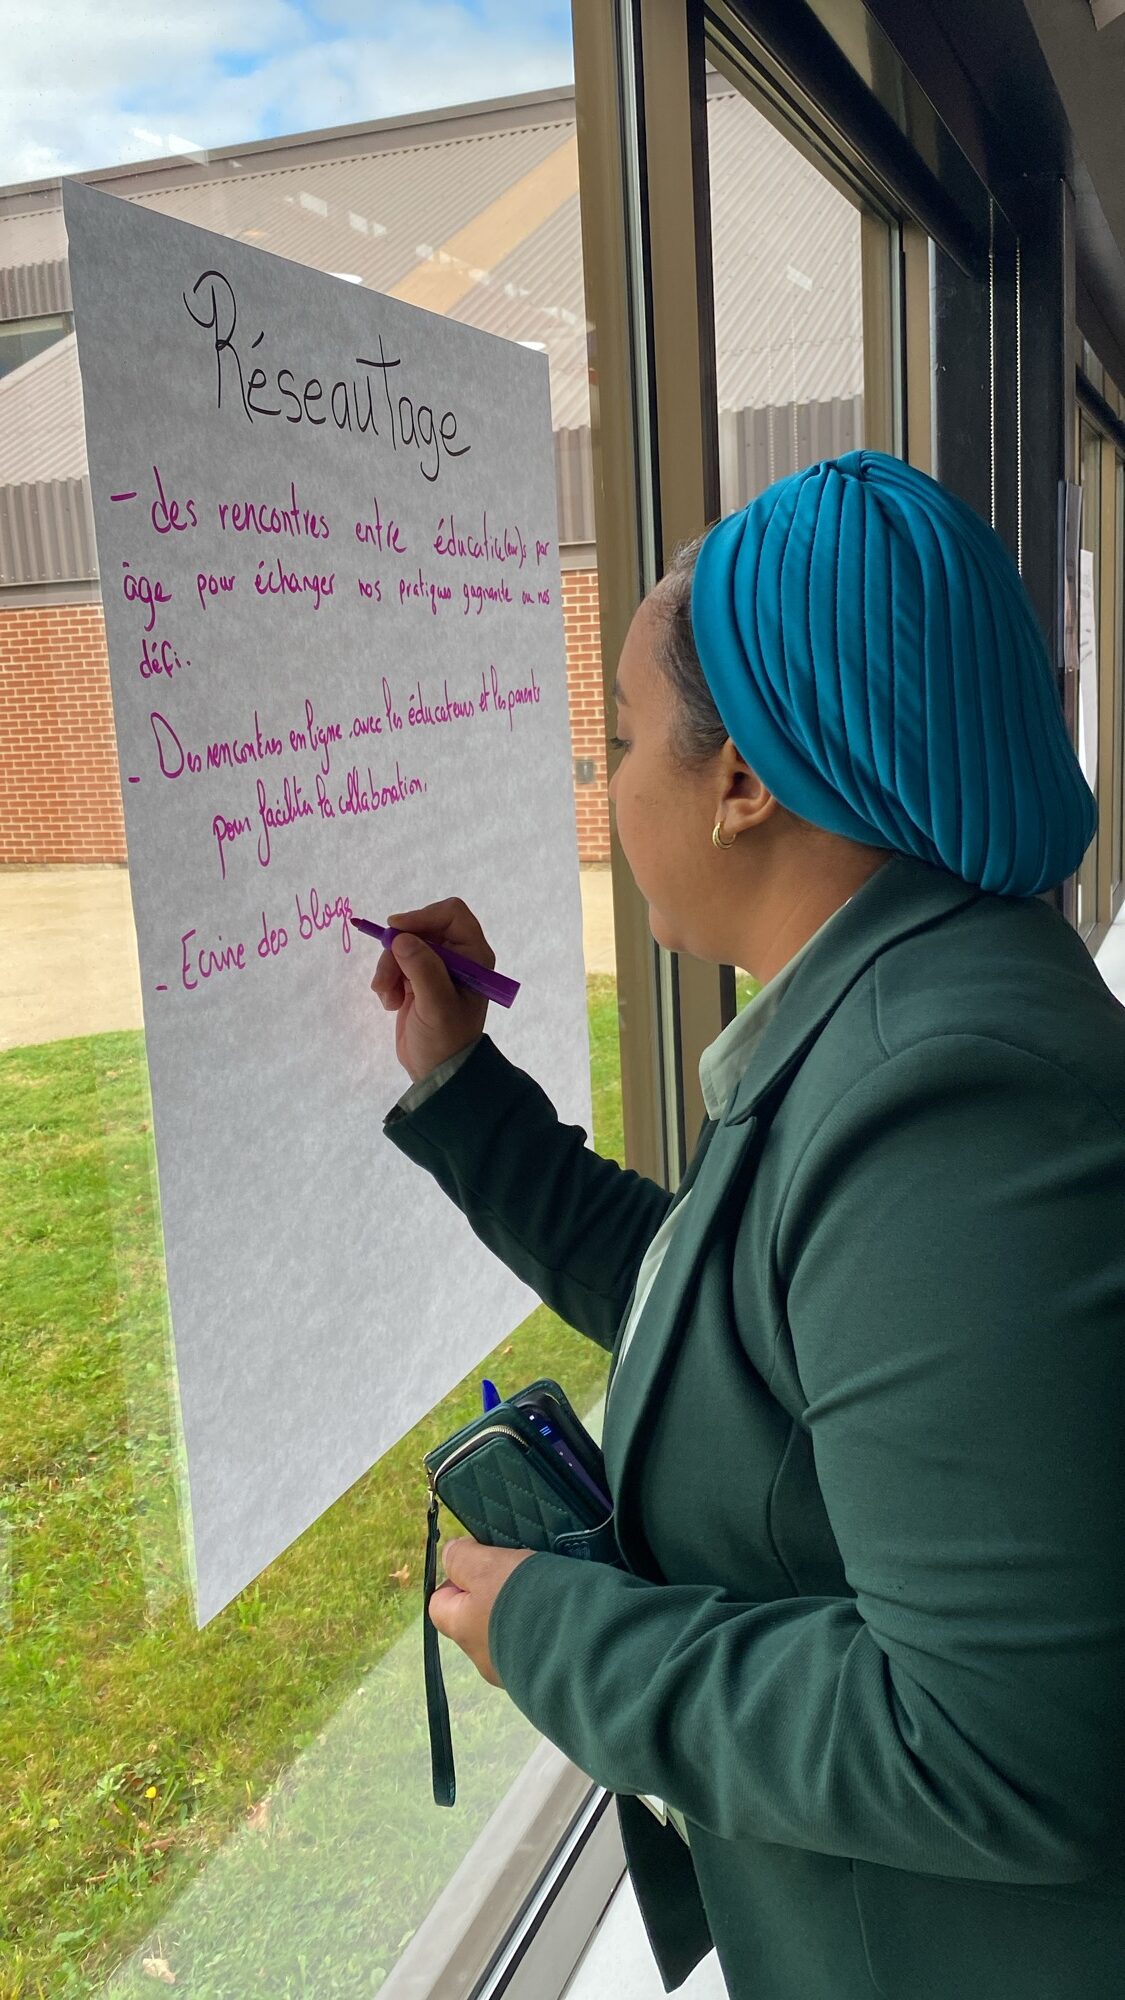 Réseautage
- des rencontres entre éducatrice(eur)s par
âge pour échanger nos pratiques gagnante ou nos
défi.
- Des rencontres en ligne avec les éducateurs et les parents
pour faciliter la collaboration.
- Ecrire des blogs